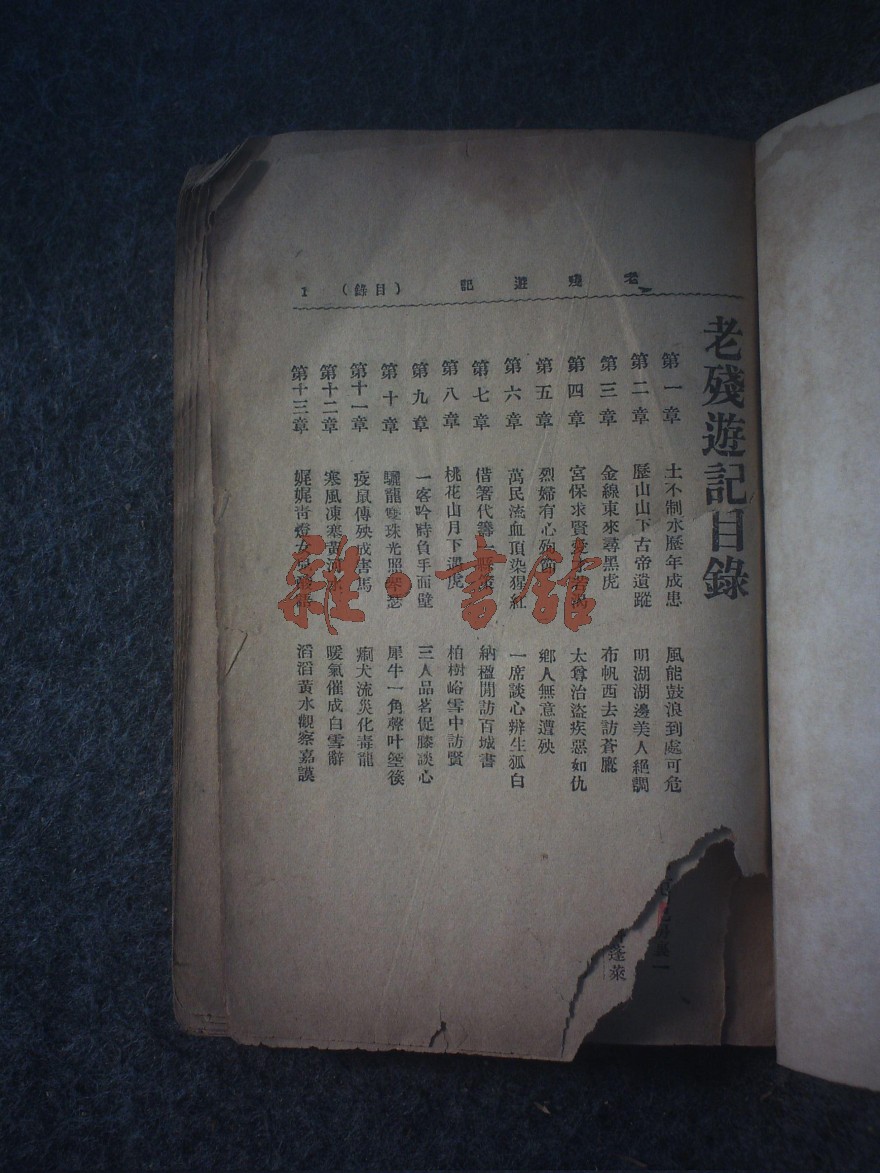 老殘遊記（目錄）1
老殘遊記目錄
第一章 土不制水歷年成患 風能鼓浪到處可危
第二章 歷山山下古帝遺蹤 明湖湖邊美人絕調
第三章 金線東來尋黑虎 布帆西去訪蒼鷹
第四章 宮保求賢愛才若渴 太尊治盜疾惡如仇
第五章 烈婦有心殉節 鄉人無意遭殃
第六章 萬民流血頂染猩紅 一席談心辨生狐白
第七章 借箸代籌一縣策 納楹閒訪百城書
第八章 桃花山月下遇虎 柏樹峪雪中訪賢
第九章 一客吟時負手面壁 三人品茗促膝談心
第十章 驪龍雙珠光照琴瑟 犀牛一角聲叶箜篌
第十一章 疫鼠傳殃成害馬 瘈犬流災化毒龍
第十二章 寒風凍塞黃河水 暖氣催成白雪辭
第十三章 娓娓青燈女兒酸語 滔滔黃水觀察嘉謨
蓬萊
雜·書館